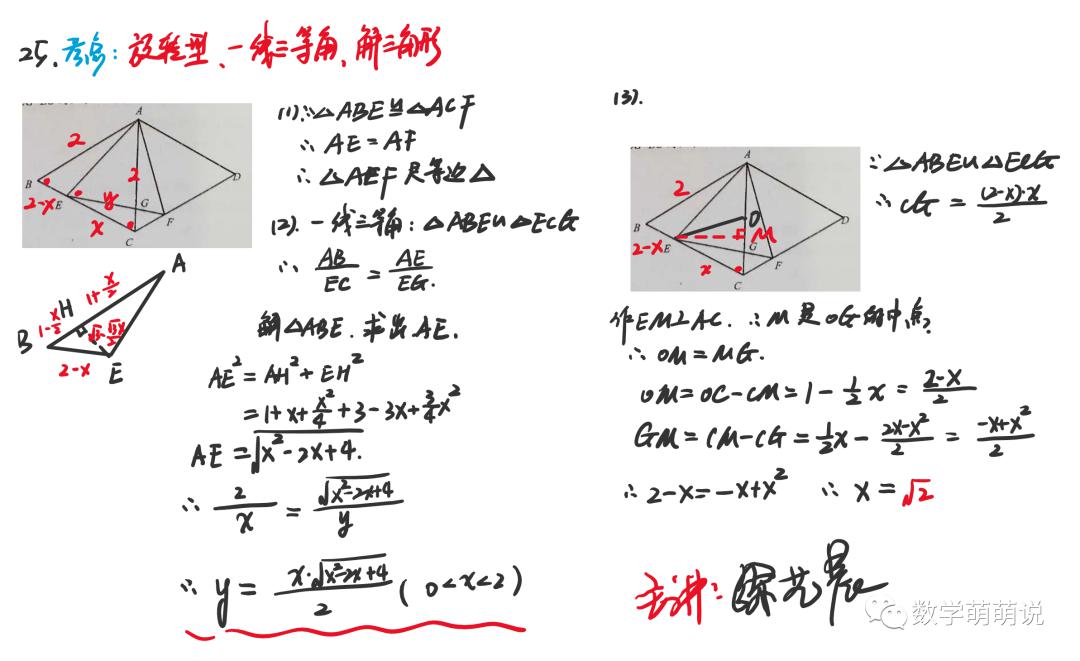 25. 考点: 旋转型、一线三等角、解三角形
A
2
2
B
D
2-x
E
y
G
F
x
C
(1)∵△ABE≌△ACF
∴ AE=AF
∴ △AEF是等边△
(2). 一线三等角: △ABE∽△ECG
∴ AB/EC = AE/EG.
解△ABE. 求出AE.
A
1+x/2
H
1-x/2
B
√3-√3x/2
2-x
E
AE²=AH²+EH²
=1+x+x²/4+3-3x+3/4x²
AE=√x²-2x+4.
∴ 2/x = √x²-2x+4/y
∴ y= x·√x²-2x+4/2 (0<x<2)
(3).
A
2
B
O
D
2-x
E
M
G
F
x
C
∵△ABE∽△ECG
∴ CG = (2-x)·x/2
作EM⊥AC. ∴M是OG的中点.
∴ OM=MG.
OM=OC-CM=1-1/2x=2-x/2
GM=CM-CG=1/2x-2x-x²/2=-x+x²/2
∴ 2-x=-x+x² ∴ x=√2
主讲:
数学萌萌说